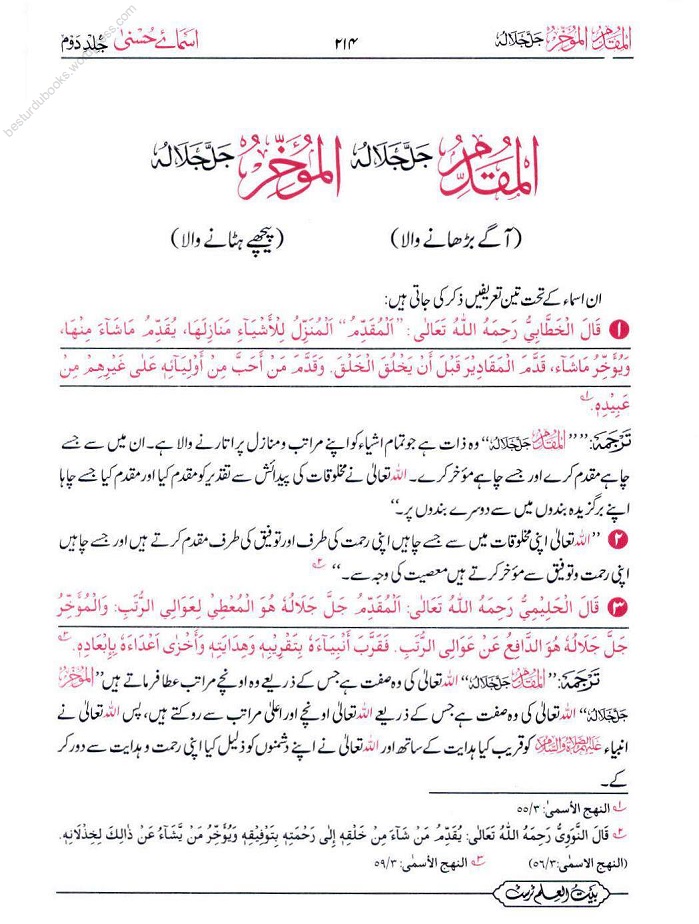 المُقَدِّمُ المُؤَخِّرُ جَلَّ جَلَالُہٗ ۲۱۴ اسمائے حُسنیٰ جُلدِ دَوم
besturdubooks.wordpress.com
المُقَدِّمُ جَلَّ جَلَالُہٗ المُؤَخِّرُ جَلَّ جَلَالُہٗ
(آگے بڑھانے والا) (پیچھے ہٹانے والا)
ان اسماء کے تحت تین تعریفیں ذکر کی جاتی ہیں:
۱ قَالَ الْخَطَّابِيُّ رَحِمَهُ اللّٰهُ تَعَالٰی: ”اَلْمُقَدِّمُ“ اَلْمُنَزِّلُ لِلْأَشْيَآءِ مَنَازِلَهَا، يُقَدِّمُ مَاشَآءَ مِنْهَا،
وَيُؤَخِّرُ مَاشَآءَ، قَدَّمَ الْمَقَادِيْرَ قَبْلَ أَنْ يَخْلُقَ الْخَلْقَ. وَقَدَّمَ مَنْ أَحَبَّ مِنْ أَوْلِيَآئِهٖ عَلٰی غَيْرِهِمْ مِنْ
عَبِيْدِهٖ.۱؎
تَرْجَمَہ: ”“المُقَدِّمُ جَلَّ جَلَالُہٗ“ وہ ذات ہے جو تمام اشیاء کو اپنے مراتب و منازل پر اتارنے والا ہے۔ ان میں سے جسے
چاہے مقدم کرے اور جسے چاہے مؤخر کرے۔ اللہ تعالیٰ نے مخلوقات کی پیدائش سے تقدیر کو مقدم کیا اور مقدم کیا جسے چاہا
اپنے برگزیدہ بندوں میں سے دوسرے بندوں پر۔“
۲ ”اللہ تعالیٰ اپنی مخلوقات میں سے جسے چاہیں اپنی رحمت کی طرف اور توفیق کی طرف مقدم کرتے ہیں اور جسے چاہیں
اپنی رحمت و توفیق سے مؤخر کرتے ہیں معصیت کی وجہ سے۔“۲؎
۳ قَالَ الْحَلِيْمِيُّ رَحِمَهُ اللّٰهُ تَعَالٰی: اَلْمُقَدِّمُ جَلَّ جَلَالُهٗ هُوَ الْمُعْطِيْ لِعَوَالِي الرُّتَبِ: وَالْمُؤَخِّرُ
جَلَّ جَلَالُهٗ هُوَ الدَّافِعُ عَنْ عَوَالِي الرُّتَبِ. فَقَرَّبَ أَنْبِيَآءَهٗ بِتَقْرِيْبِهٖ وَهِدَايَتِهٖ وَأَخْزٰی أَعْدَاءَهٗ بِإِبْعَادِهٖ.۳؎
تَرْجَمَہ: ”المُقَدِّمُ جَلَّ جَلَالُہٗ“ اللہ تعالیٰ کی وہ صفت ہے جس کے ذریعے وہ اونچے مراتب عطا فرماتے ہیں ”المُؤَخِّرُ
جَلَّ جَلَالُہٗ“ اللہ تعالیٰ کی وہ صفت ہے جس کے ذریعے اللہ تعالیٰ اونچے اور اعلیٰ مراتب سے روکتے ہیں، پس اللہ تعالیٰ نے
انبیاء عَلَیْہِمُ الصَّلٰوۃُ وَالسَّلَام کو قریب کیا ہدایت کے ساتھ اور اللہ تعالیٰ نے اپنے دشمنوں کو ذلیل کیا اپنی رحمت و ہدایت سے دور کر
کے۔
۱؎ النهج الأسمیٰ: ۳/۵۵
۲؎ قَالَ النَّوَوِيُّ رَحِمَهُ اللّٰهُ تَعَالٰی: يُقَدِّمُ مَنْ شَاءَ مِنْ خَلْقِهٖ إِلٰی رَحْمَتِهٖ بِتَوْفِيْقِهٖ وَيُؤَخِّرُ مَنْ يَّشَآءُ عَنْ ذَالِكَ لِخِذْلَانِهٖ.
(النهج الاسمیٰ: ۳/۵۶) ۳؎ النهج الأسمیٰ: ۳/۵۹
بیتُ العِلم ٹرسٹ